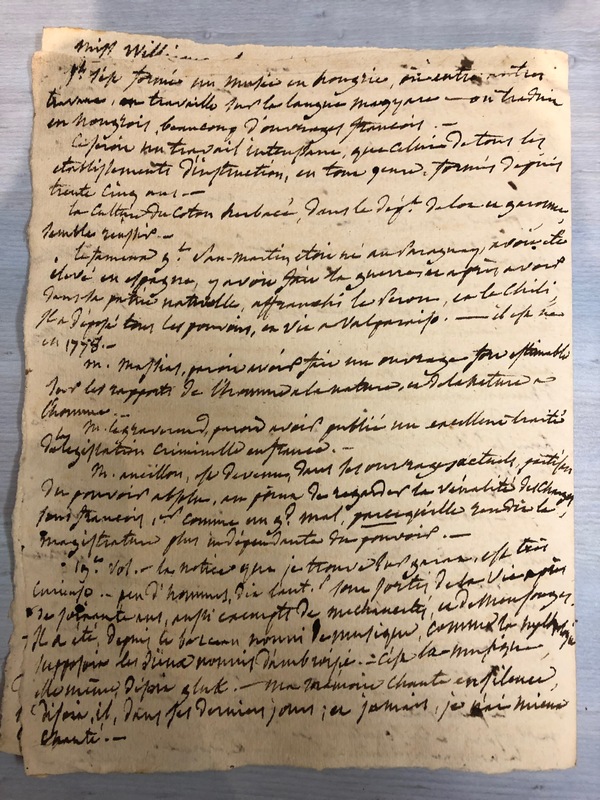 Miss Will
il s'est formé un musée en hongrie, où entre autres
travaux, on travaille sur la langue magyare — on traduit
en hongrois, beaucoup d'ouvrages françois. —
un travail intéressant, que celui de tous les
établissements d'instruction, en tout genre, formés depuis
trente cinq ans. —
la culture du coton herbacé, dans le dépt. de lot et garonne
semble réussir. —
le fameux gl. San-martin étoit né au Paraguay, avoit été
élevé en espagne, y avoit fait la guerre et après avoir
dans sa patrie naturelle, affranchi le Perou, et le Chili
il a déposé tous les pouvoirs, et vit a Valparaiso. — il est né
en 1778. —
M. Massias, paroit avoir fait un ouvrage fort estimable
sur les rapports de l'homme a la nature, et de la nature a
l'homme.
M. legraverend, paroit avoir publié un excellent traité
de législation criminelle en france. —
M. ancillon, est devenu, dans ses ouvrages actuels, partisan
du pouvoir absolu, au point de regarder la vénalité des charges
sous françois 1er comme un gd. mal, parcequ'elle rendit la
magistrature plus indépendante du pouvoir. —
19e. vol. — la notice que je trouve sur garat, est très
curieuse. — peu d'hommes, dit l'aut.r sont sortis de la vie après
de soixante ans, aussi exempts de méchanceté, et de mensonges.
Il a été depuis le berceau nourri de musique, comme la mythologie
supposoit les dieux nourris d'ambroisie. — C'est la musique,
elle même, disoit gluk. — Ma mémoire chante en silence,
disoit il, dans ses derniers jours ; et jamais, je n'ai mieux
chanté. —